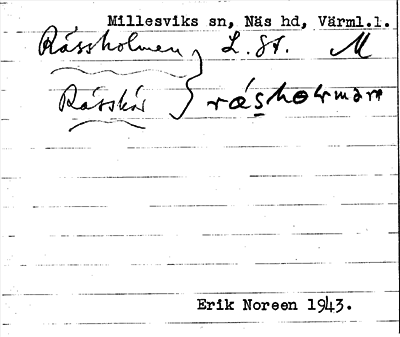 Millesviks sn, Näs hd, Värml.l.
Råssholmen L. St. M
Råsskär råsholman
Erik Noreen 1943.